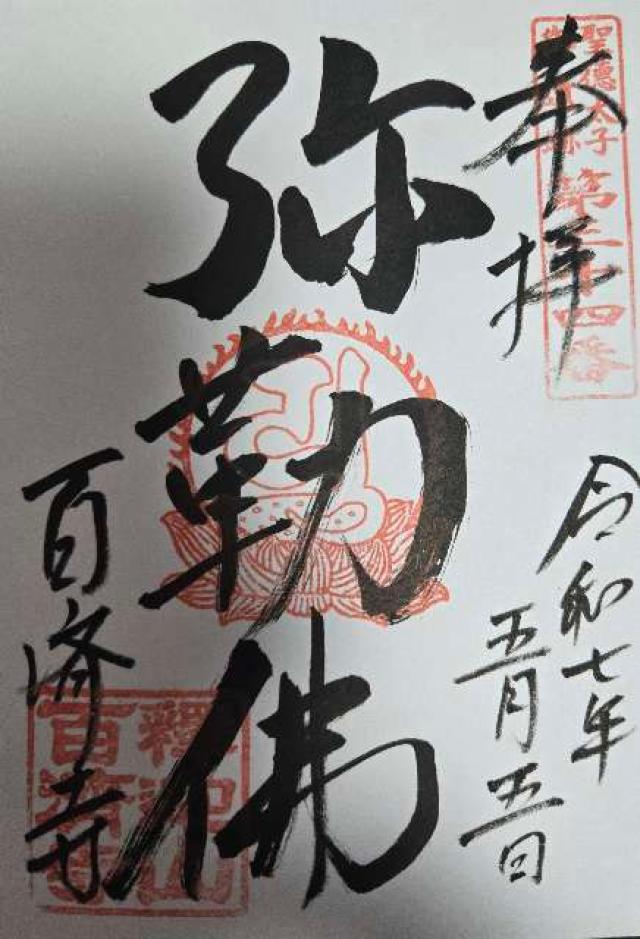 奉拝
聖徳太子
第三十四番
令和七年
五月五日
弥勒佛
百済寺
釋迦山
百済寺